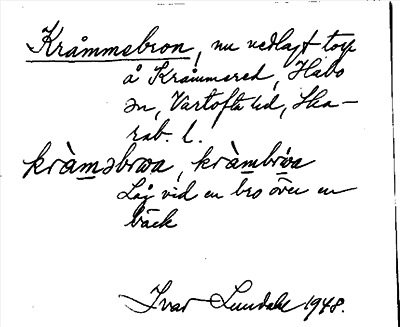 Kråmmebron, nu nedlagt torp
å Krämmered, Habo
sn, Vartofta hd, Ska-
rab. l.
kràməbrωa, kràmbrωa
Låg vid en bro över en
bäck
Ivar Lundahl 1948.